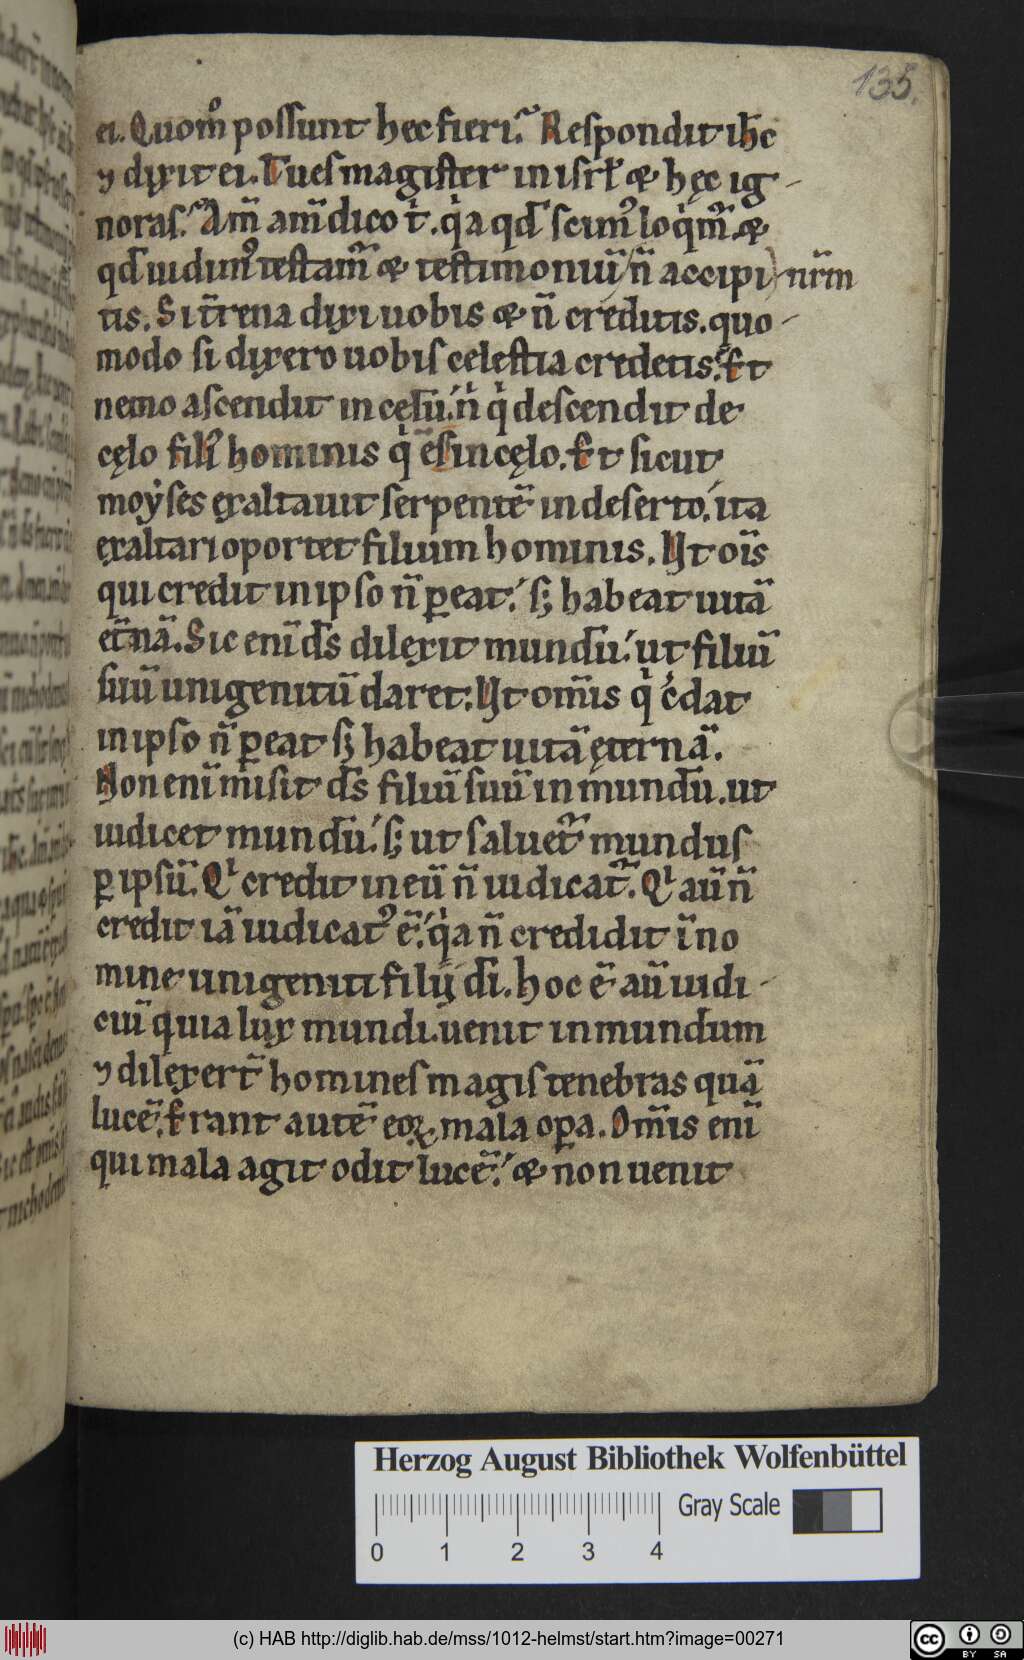 135.
ei. Quom̊ possunt hec fieri? Respondit ih̅c
⁊ dixit ei. Tu es magister in isrł & hęc ig-
noras? Am̅ am̅ dico t̍. q̍a qd̅ scim᷒ loq̍m᷑. &
qd̅ uidim᷒ testam᷑ & testimoniu̅ n̅ accipi nr̅m
tis. Si t̅rena dixi uobis & n̅ creditis. quo-
modo si dixero uobis celestia credetis? Et
nemo ascendit in cęlu̅. n̍ q̍ descendit de
cęlo fili᷒ hominis q̍ e̅ in cęlo. Et sicut
moẏses exaltauit serpente̅ in deserto, ita
exaltari oportet filium hominis. Vt oi̅s
qui credit in ipso n̅ ꝑeat. sꝫ habeat uita̅
et̅na̅. Sic eni̅ d̅s dilexit mundu̅. ut filiu̅
suu̅ unigenitu̅ daret. Vt om̅is q̍ c̍dat
in ipso n̅ ꝑeat sꝫ habeat uita̅ ęterna̅.
Non eni̅ misit d̅s filiu̅ suu̅ in mundu̅. ut
iudicet mundu̅. sꝫ ut saluet᷑ mundus
ꝑ ipsu̅. Qͥ credit in eu̅ n̅ iudicat᷑. Qͥ au̅ n̅
credit ia̅ iudicat᷒ e̅. q̍a n̅ credidit i̅ no
mine unigeniti filii d̅i. hoc e̅ au̅ iudi-
ciu̅ quia lux mundi. uenit in mundum
⁊ dilexer̅t homines magis tenebras qua̅
luce̅. Erant aute̅ eoꝝ mala oꝑa. Om̅is eni̅
qui mala agit odit luce̅. & non uenit
Herzog August Bibliothek Wolfenbüttel
Gray Scale
0 1 2 3 4
(c) HAB http://diglib.hab.de/mss/1012-helmst/start.htm?image=00271
cc BY SA